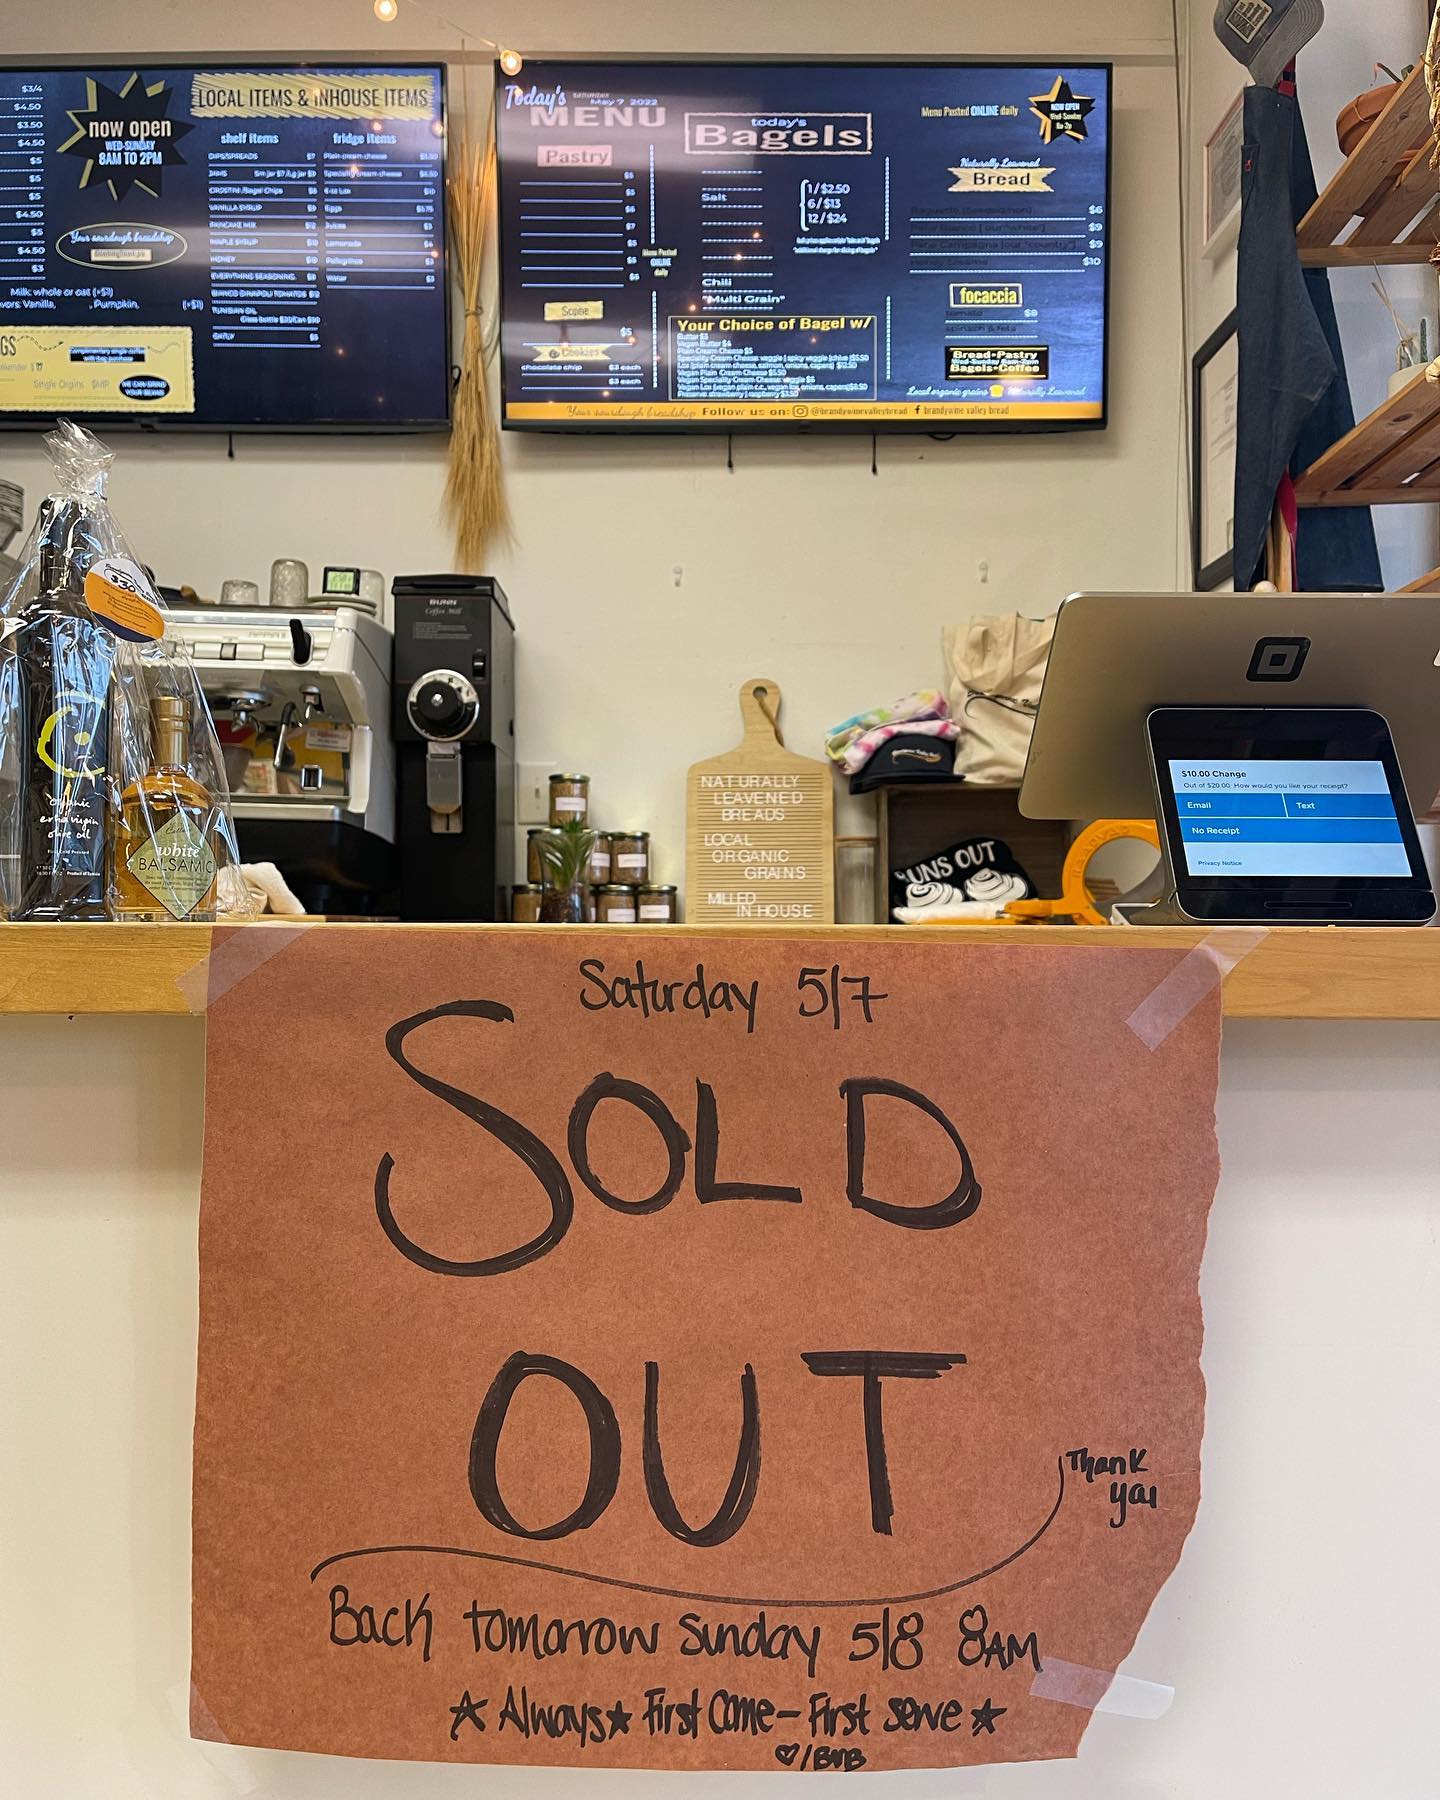 $3/4
$4.50
$3.50
$4.50
$5
$5
$5
$4.50
$5
$4.50
$3
now open
WED-SUNDAY
8AM TO 2PM
Your sourdough breadshop
Milk: whole or oat (+$1)
Vanilla, , Pumpkin, (+$1)
Complimentary single coffee
with bag purchase
Single Orgins $MP
WE CAN GRIND
YOUR BEANS
LOCAL ITEMS & INHOUSE ITEMS
shelf items
DIPS/SPREADS $7
JAMS Sm jar $7 /Lg jar $9
CROSTINI /Bagel Chips $6
VANILLA SYRUP
PANCAKE MIX
MAPLE SYRUP
HONEY
EVERYTHING SEASONING
BIANCO DINAPOLI TOMATOES
TUNISIAN OIL
fridge items
Plain cream cheese
Speciality cream cheese
4 oz Lox
Eggs
Juices
Lemonade
Pellegrinos
Water
Today's
SATURDAY
May 7 2022
MENU
Pastry
$5
$5
$6
$7
$5
$6
Menu Posted
ONLINE
daily
Scone
$5
Cookies
chocolate chip $3 each
$3 each
today's
Bagels
Salt
Chili
"Multi Grain"
1 / $2.50
6 / $13
12 / $24
Your Choice of Bagel w/
Butter $3
Vegan Butter $4
Plain Cream Cheese $5
Speciality Cream Cheese: veggie | spicy veggie |chive |$5.50
Lox |plain cream cheese, salmon, onions, capers| $12.50
Vegan Plain Cream Cheese $5.50
Vegan Speciality Cream Cheese: veggie $6
Preserve: strawberry | raspberry $3.50
Menu Posted ONLINE daily
NOW OPEN
Wed-Sunday
8a-2p
Naturally Leavened
Bread
$6
$9
$9
$10
focaccia
tomato $8
spinach & feta
Bread•Pastry
Wed-Sunday 8am-2pm
Bagels•Coffee
Local organic grains Naturally Leavened
Your sourdough breadshop Follow us on: @brandywinevalleybread brandywine valley bread
$30
BUNN
Coffee Mill
Organic
extra virgin
olive oil
white
BALSAMIC
NATURALLY
LEAVENED
BREADS
LOCAL
ORGANIC
GRAINS
MILLED
IN HOUSE
BUNS OUT
$10.00 Change
Out of $20.00 How would you like your receipt?
Email
Text
No Receipt
Privacy Notice
Saturday 5/7
SOLD
OUT
Thank
you
Back tomorrow Sunday 5/8 8AM
☆ Always ★ First Come - First serve ☆
♡/BVB